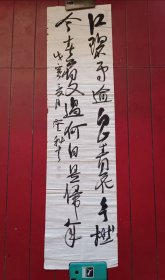 江碧鸟逾白山青花欲燃
今春看又過何日是歸年